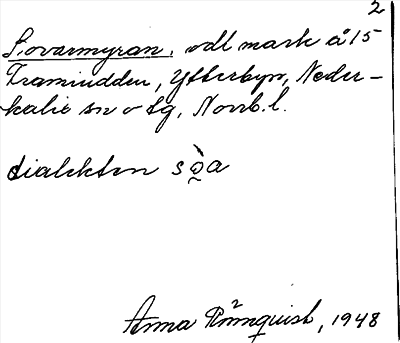 2
Sovarmyran, odl mark å 15
Framiudden, Ytterbyn, Neder-
kalix sn o tg, Norrb. l.
dialekten sò̰a
Anna Rönnquist, 1948